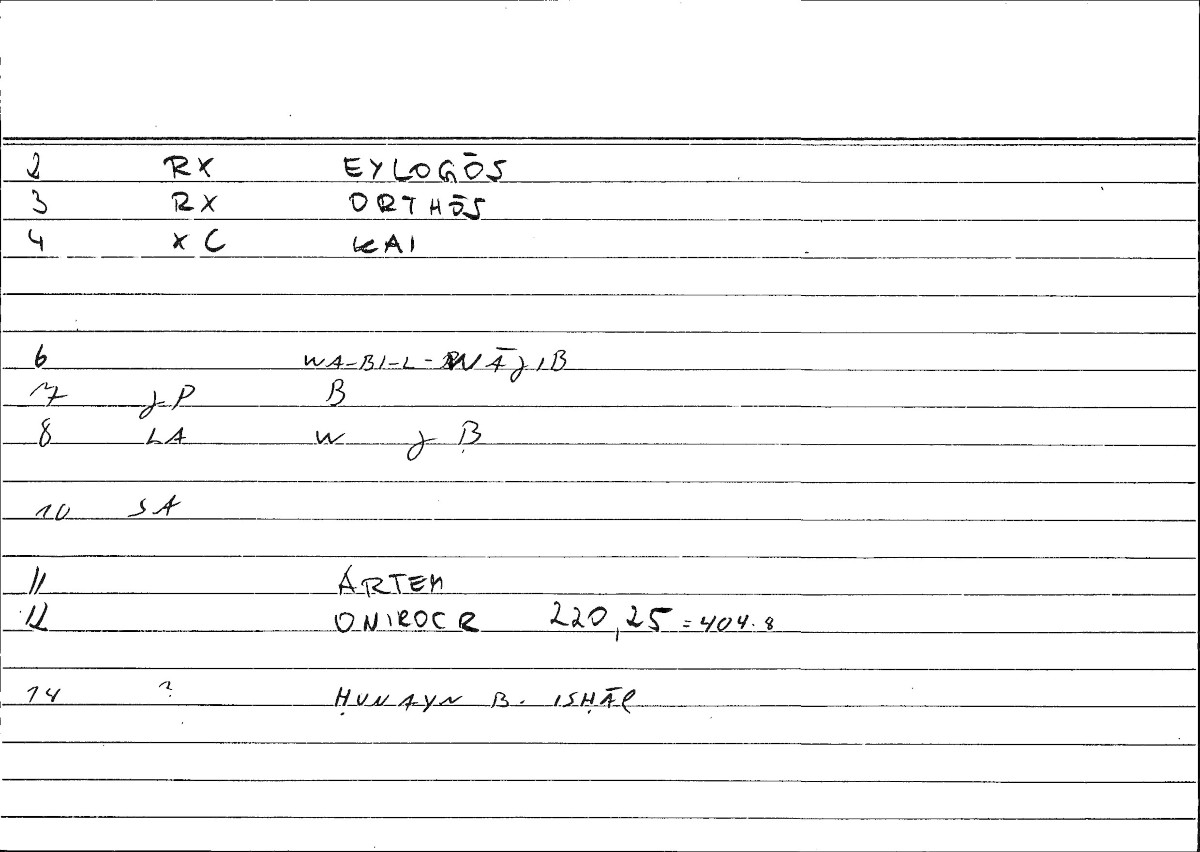 2 RX EYLOGŌS
3 RX ORTHŌS
4 XC KAI
6 WA-BI-L-WĀJIB
7 JP B
8 LA W J Ḅ
10 SA
11 ARTEM
12 ONIROCR 220,25 = 404.8
14 ? ḤUNAYN B. ISḤĀQ